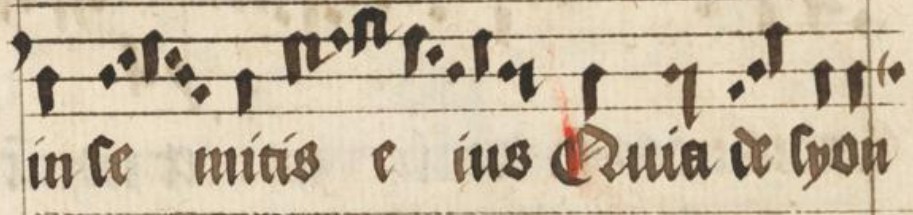 in se mitis e ius Quia de syon